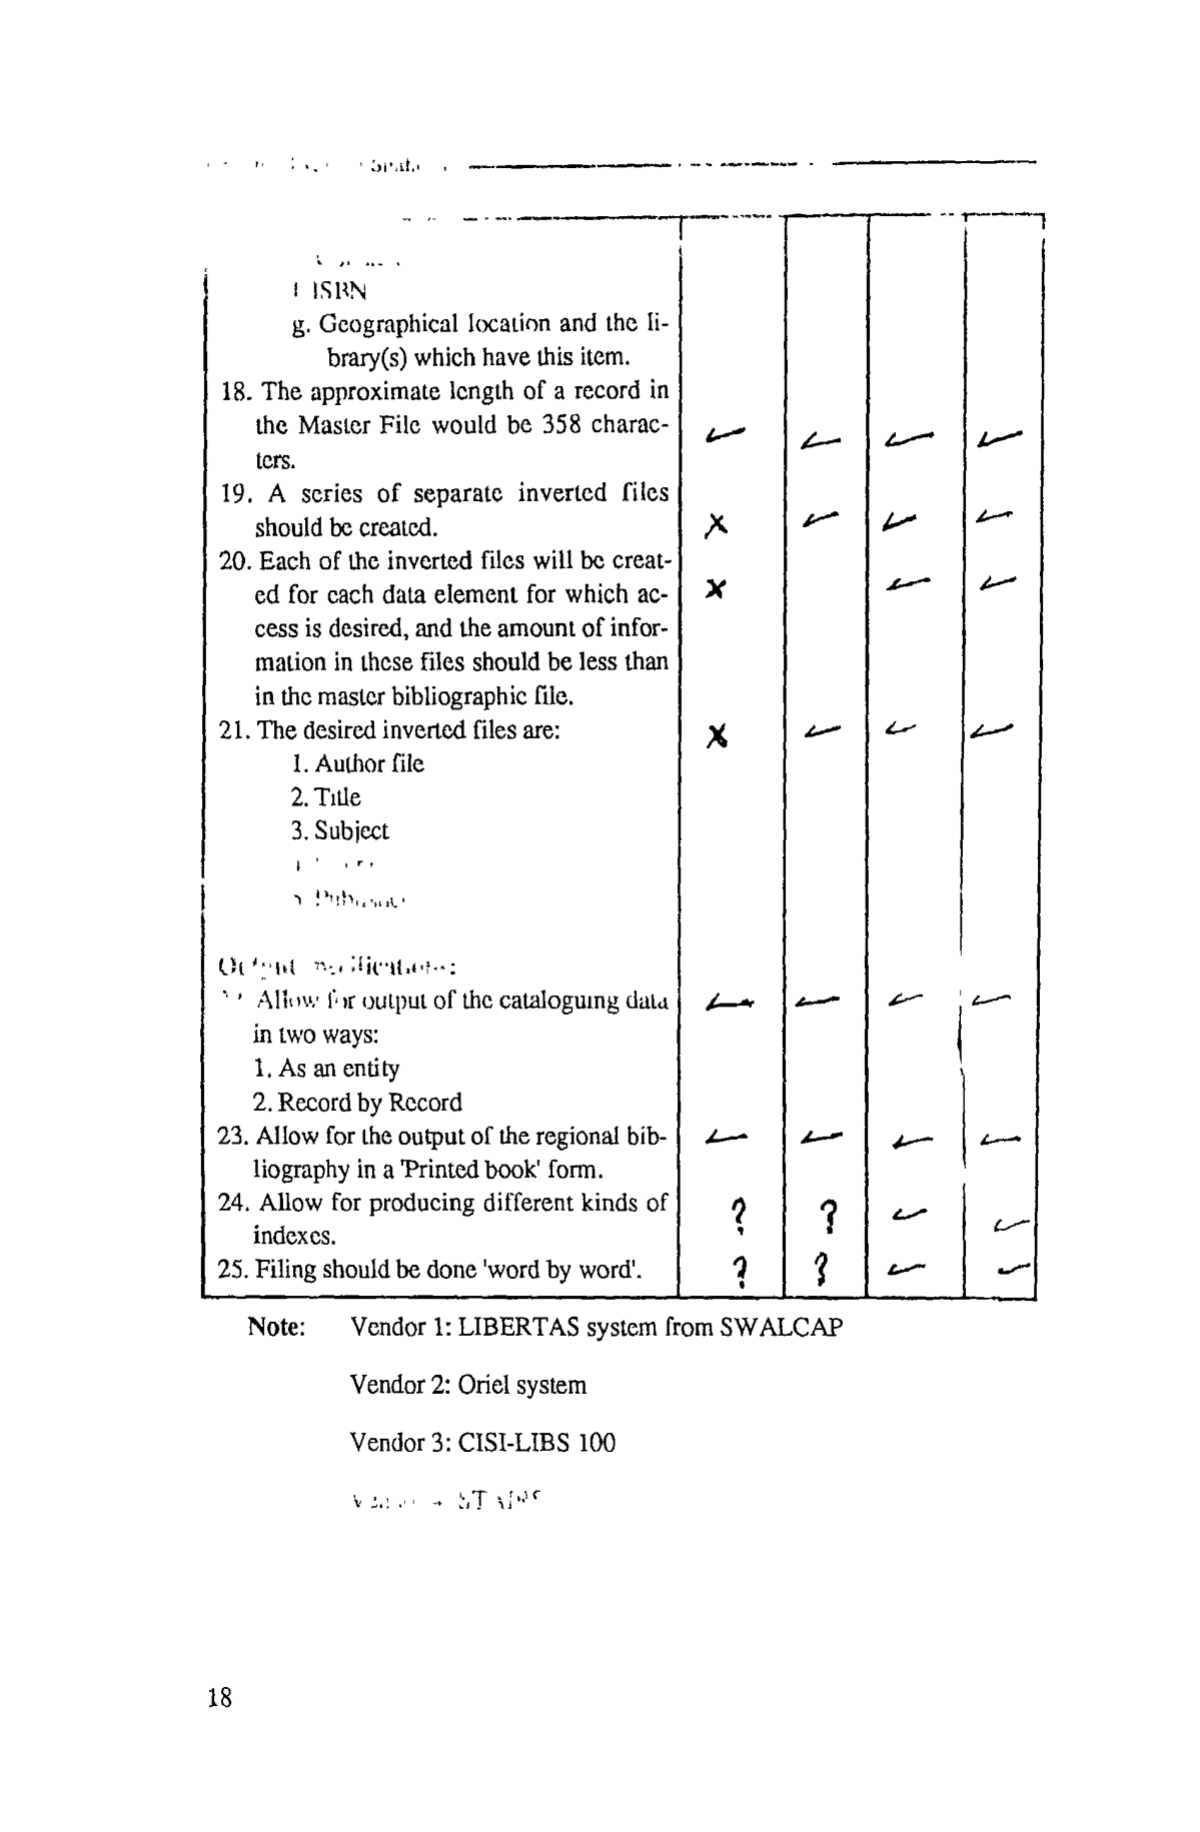 ISBN
g. Geographical location and the li-
brary(s) which have this item.
18. The approximate length of a record in
the Master File would be 358 charac-
ters.
✓ ✓ ✓ ✓
19. A series of separate inverted files
should be created.
X ✓ ✓ ✓
20. Each of the inverted files will be creat-
ed for each data element for which ac-
X ✓ ✓
cess is desired, and the amount of infor-
mation in these files should be less than
in the master bibliographic file.
21. The desired inverted files are:
X ✓ ✓ ✓
1. Author file
2. Title
3. Subject
Allow for output of the cataloguing data
✓ ✓ ✓ ✓
in two ways:
1. As an entity
2. Record by Record
23. Allow for the output of the regional bib-
✓ ✓ ✓ ✓
liography in a 'Printed book' form.
24. Allow for producing different kinds of
indexes.
? ? ✓ ✓
25. Filing should be done 'word by word'.
? ? ✓ ✓
Note: Vendor 1: LIBERTAS system from SWALCAP
Vendor 2: Oriel system
Vendor 3: CISI-LIBS 100
18